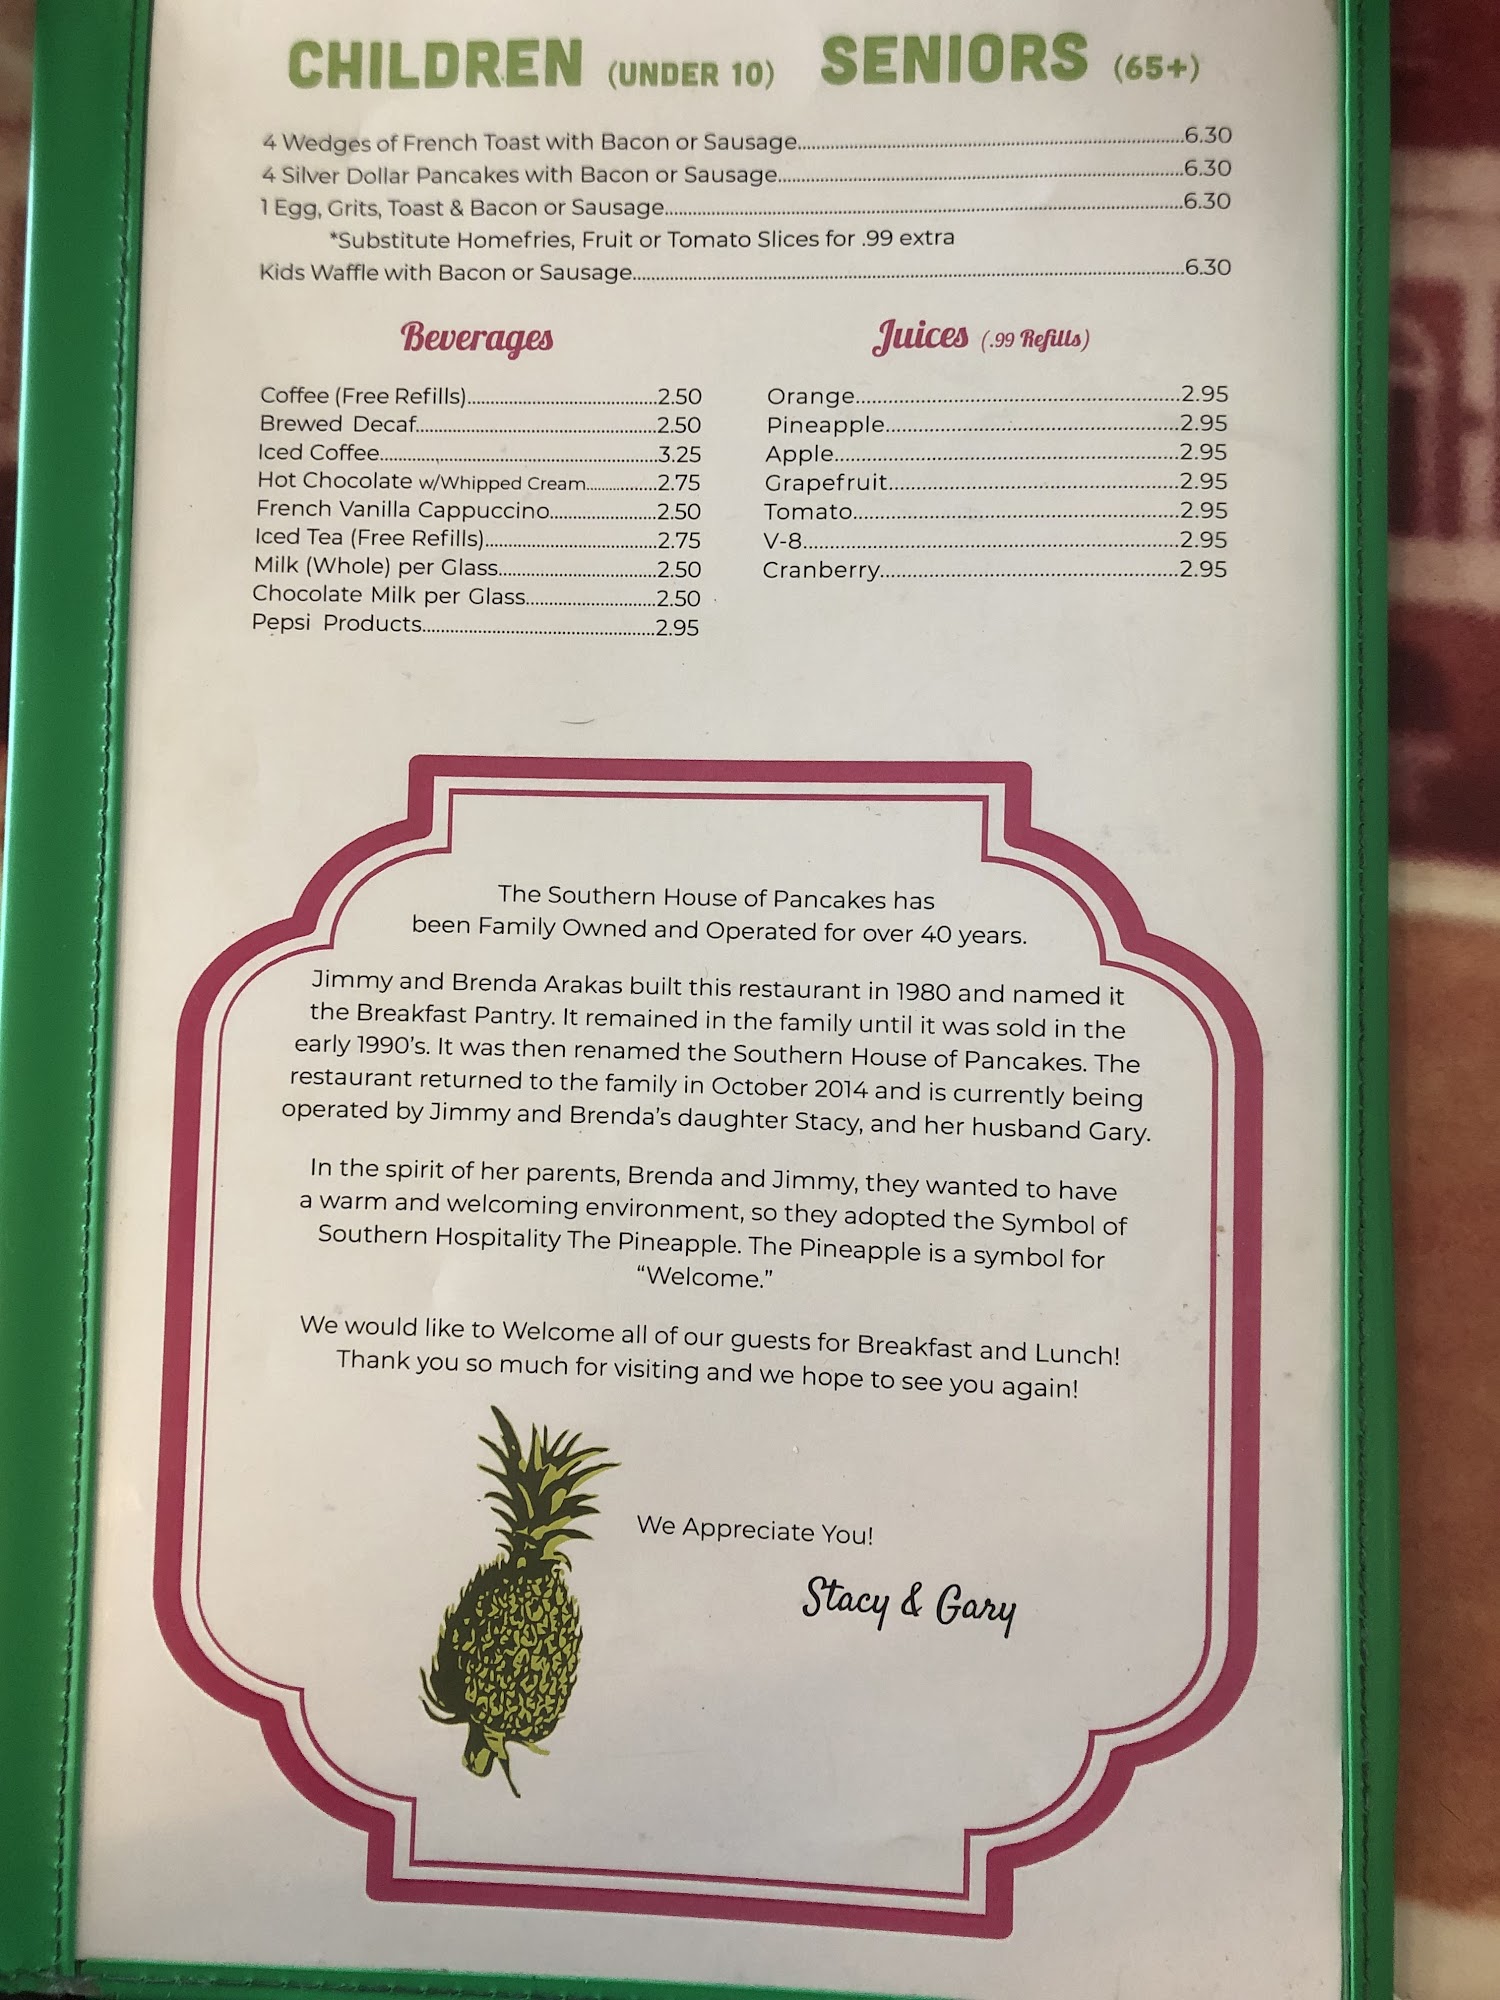 CHILDREN (UNDER 10) SENIORS (65+)
4 Wedges of French Toast with Bacon or Sausage 6.30
4 Silver Dollar Pancakes with Bacon or Sausage 6.30
1 Egg, Grits, Toast & Bacon or Sausage 6.30
*Substitute Homefries, Fruit or Tomato Slices for .99 extra
Kids Waffle with Bacon or Sausage 6.30
Beverages
Coffee (Free Refills) 2.50
Brewed Decaf 2.50
Iced Coffee 3.25
Hot Chocolate w/Whipped Cream 2.75
French Vanilla Cappuccino 2.50
Iced Tea (Free Refills) 2.75
Milk (Whole) per Glass 2.50
Chocolate Milk per Glass 2.50
Pepsi Products 2.95
Juices (.99 Refills)
Orange 2.95
Pineapple 2.95
Apple 2.95
Grapefruit 2.95
Tomato 2.95
V-8 2.95
Cranberry 2.95
The Southern House of Pancakes has
been Family Owned and Operated for over 40 years.
Jimmy and Brenda Arakas built this restaurant in 1980 and named it
the Breakfast Pantry. It remained in the family until it was sold in the
early 1990's. It was then renamed the Southern House of Pancakes. The
restaurant returned to the family in October 2014 and is currently being
operated by Jimmy and Brenda's daughter Stacy, and her husband Gary.
In the spirit of her parents, Brenda and Jimmy, they wanted to have
a warm and welcoming environment, so they adopted the Symbol of
Southern Hospitality The Pineapple. The Pineapple is a symbol for
"Welcome."
We would like to Welcome all of our guests for Breakfast and Lunch!
Thank you so much for visiting and we hope to see you again!
We Appreciate You!
Stacy & Gary